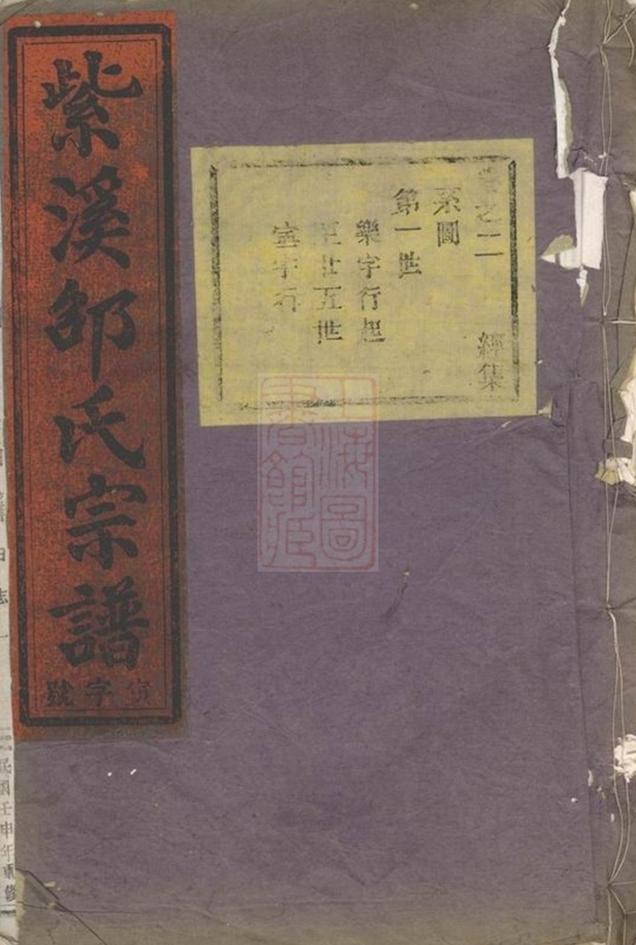 紫溪邵氏宗譜
字號
卷之二 經集
系圖
第一世
樂字行起
至廿五世
字行
上海圖書館藏
民國壬申年重修